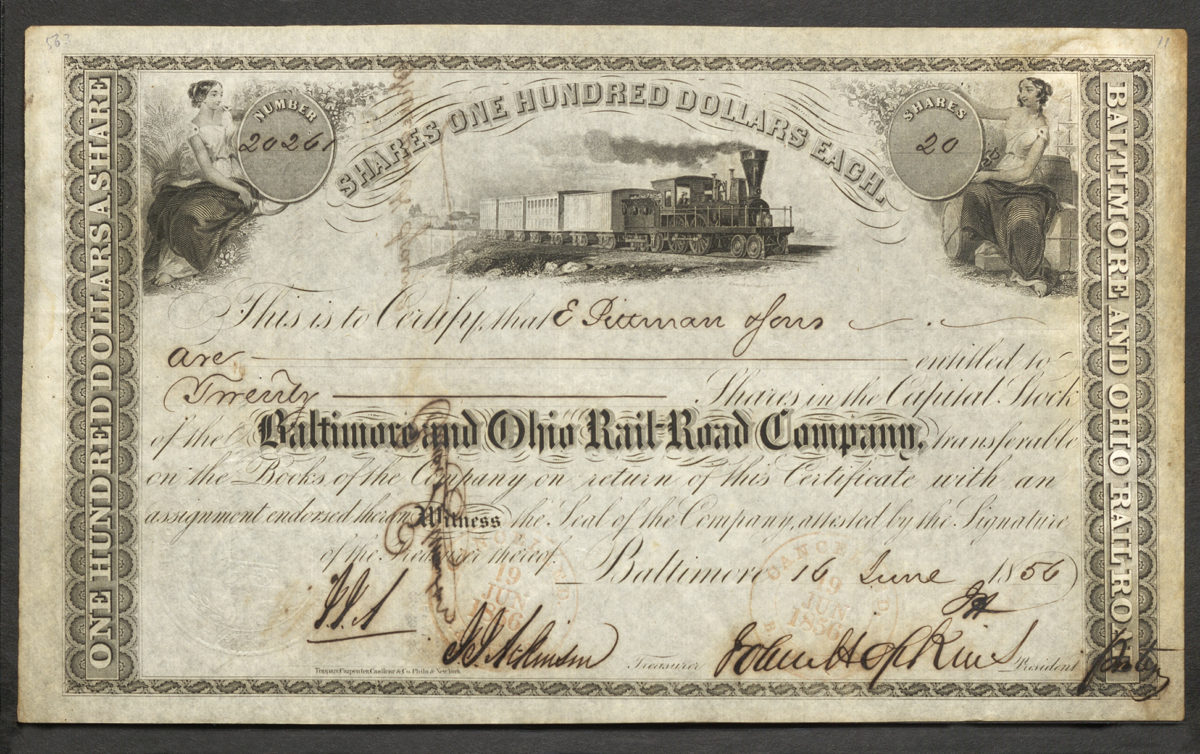 563
11
ONE HUNDRED DOLLARS A SHARE
NUMBER
20261
SHARES ONE HUNDRED DOLLARS EACH.
SHARES
20
BALTIMORE AND OHIO RAIL ROAD
This is to Certify, that E Pittman & Sons
are entitled to
Twenty Shares in the Capital Stock
of the Baltimore and Ohio Rail-Road Company, transferable
on the Books of the Company on return of this Certificate with an
assignment endorsed thereon Witness the Seal of the Company, attested by the Signature
of the Treasurer thereof. Baltimore 16 June 1856
CANCELLED
19
JUN
1856
CANCELLED
19
JUN
1856
J.I.A
J.I. Atkinson Treasurer Johns Hopkins President
Toppan, Carpenter, Casilear & Co. Phila. & New York.